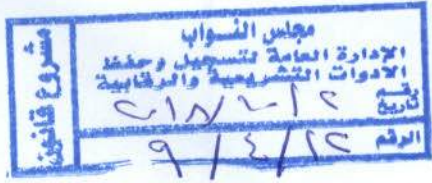 مشروع قانون
مجلس النواب
الإدارة العامة لتسجيل وحفظ
الادوات التشريعية والرقابية
رقم
تاريخ
الرقم